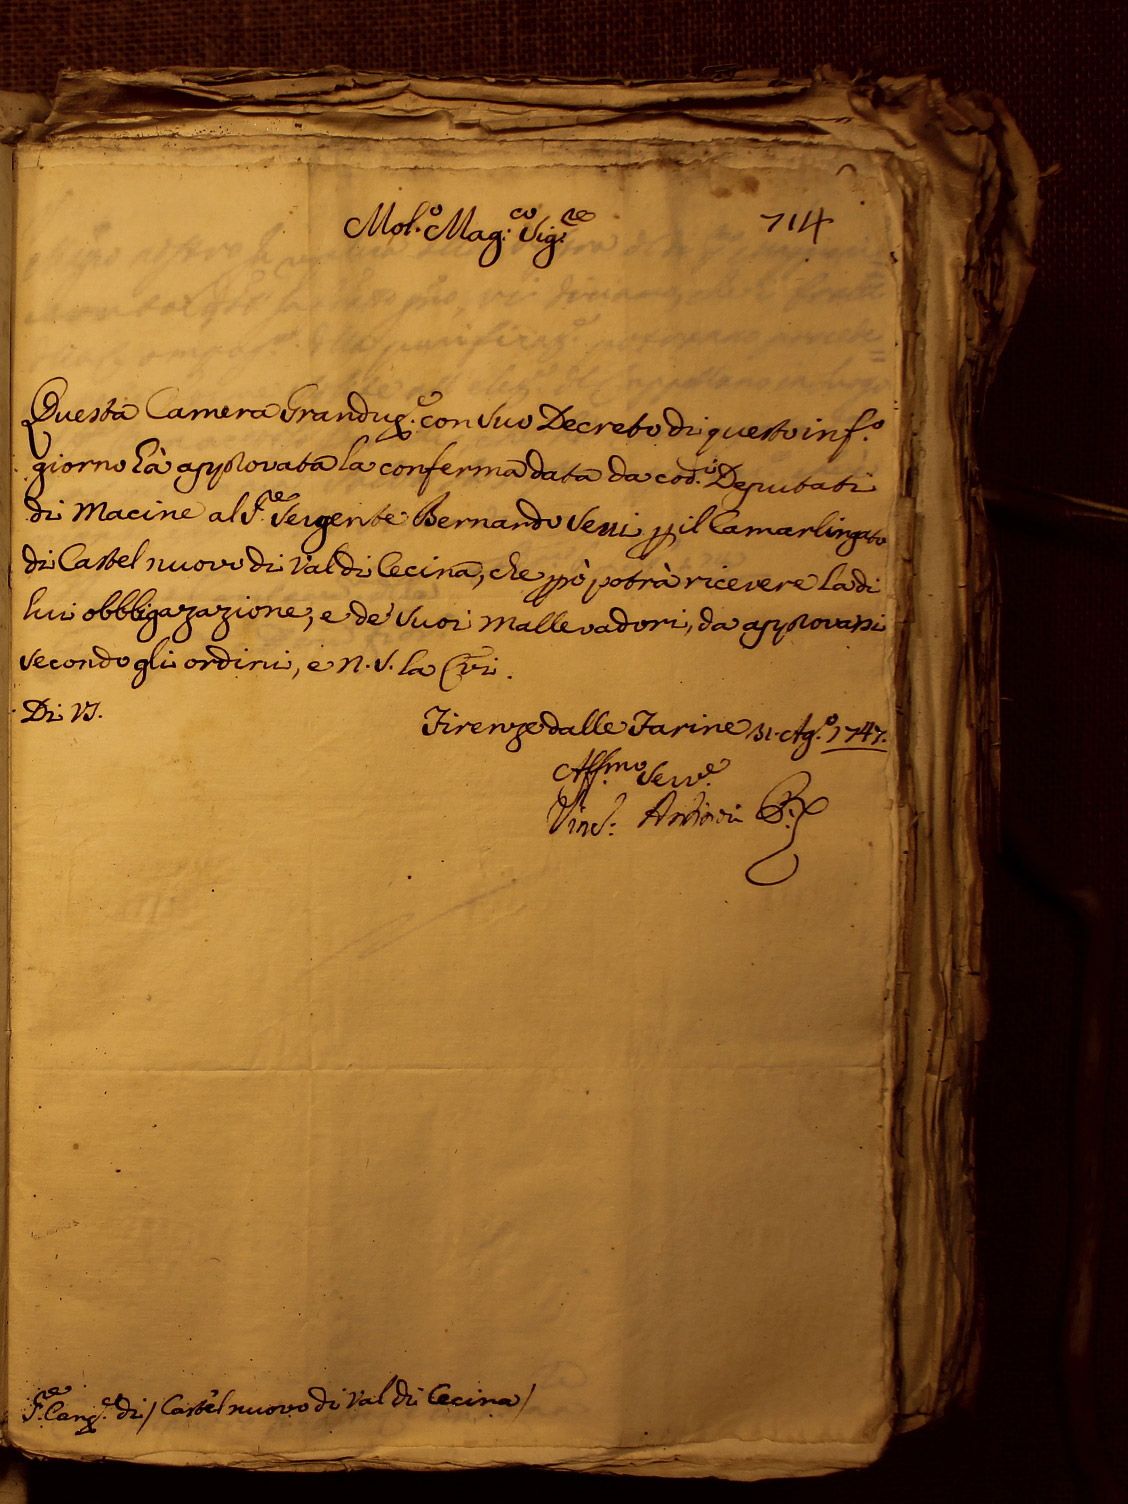 Mol.º Mag:co Sig:re
714
Questa Camera Grandug.e con suo Decreto di questo inf.º
giorno hà approvata la conferma data da cod.i Deputati
di Macine al S.re Sergente Bernardo Serri p il Camarlingato
di Castel nuovo di Val di Cecina, che però potrà ricevere la di
lui obbligazazione, e de' suoi mallevadori, da approvarsi
secondo gli ordini, e N. S. la
Di VS.
Firenze dalle Farine 31. Ag.º 1747.
Aff.mo Serv.e
Vinc.º
S.re Canc.e di / Castel nuovo di Val di Cecina /